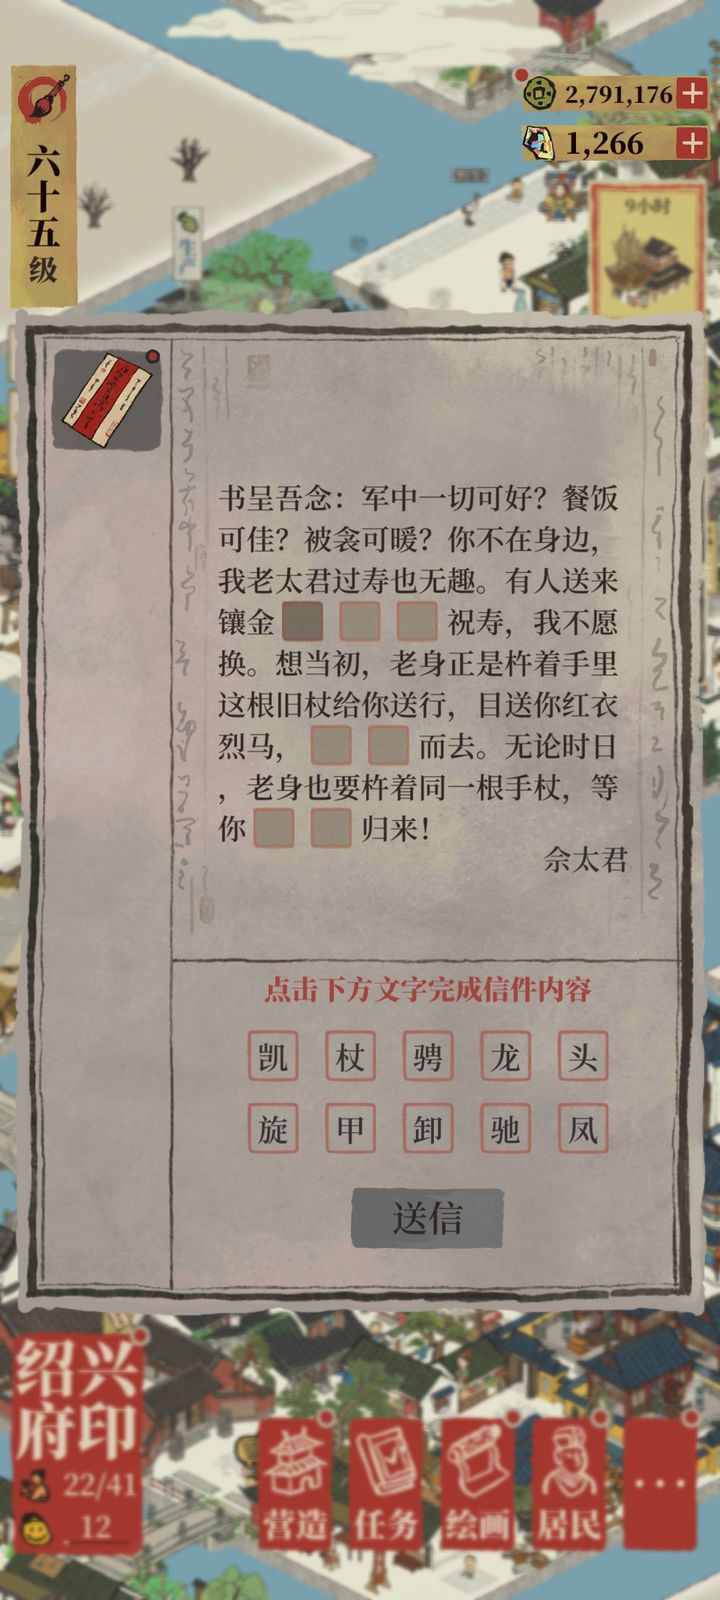 六十五级
2,791,176
1,266
生产
9小时
书呈吾念：军中一切可好？餐饭
可佳？被衾可暖？你不在身边，
我老太君过寿也无趣。有人送来
镶金 祝寿，我不愿
换。想当初，老身正是杵着手里
这根旧杖给你送行，目送你红衣
烈马， 而去。无论时日
，老身也要杵着同一根手杖，等
你 归来！
佘太君
点击下方文字完成信件内容
凯 杖 骋 龙 头
旋 甲 卸 驰 凤
送信
绍兴
府印
22/41
12
营造 任务 绘画 居民